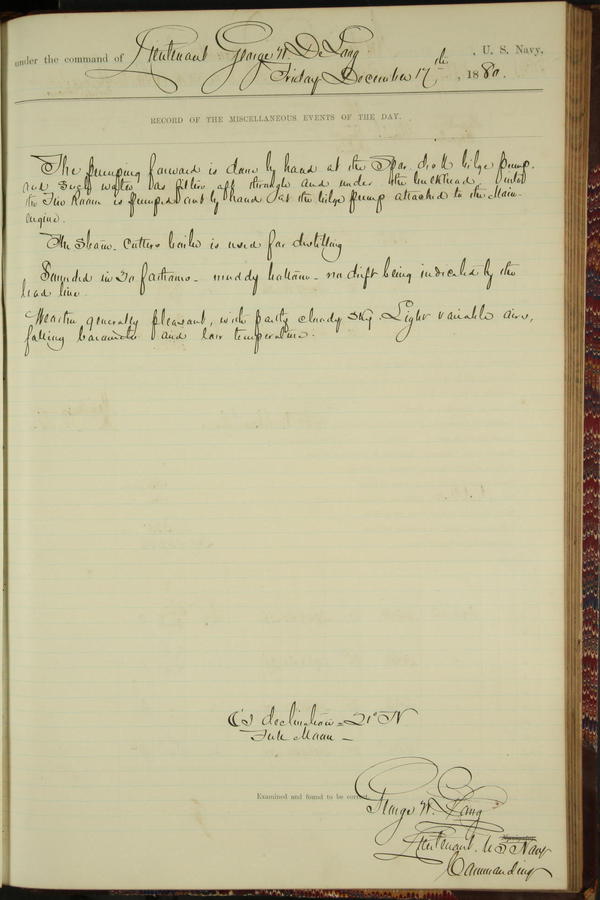 under the command of Lieutenant George W. De Long , U. S. Navy,
Friday December 17th , 1880.
RECORD OF THE MISCELLANEOUS EVENTS OF THE DAY.
The pumping forward is done by hand at the Spar deck bilge pump.
and such water as filters aft through and under the bulkhead into
the Fire Room is pumped out by hand at the bilge pump attached to the Main
engine.
The Steam-Cutters boiler is used for distilling
Sounded in 30 fathoms - muddy bottom - no drift being indicated by the
lead line.
Weather generally pleasant, with partly cloudy sky. Light variable airs,
falling barometer and low temperature.
declination = 21° N
Full Moon -
Examined and found to be correct.
George W. De Long
Lieutenant. U S Navy
Commanding